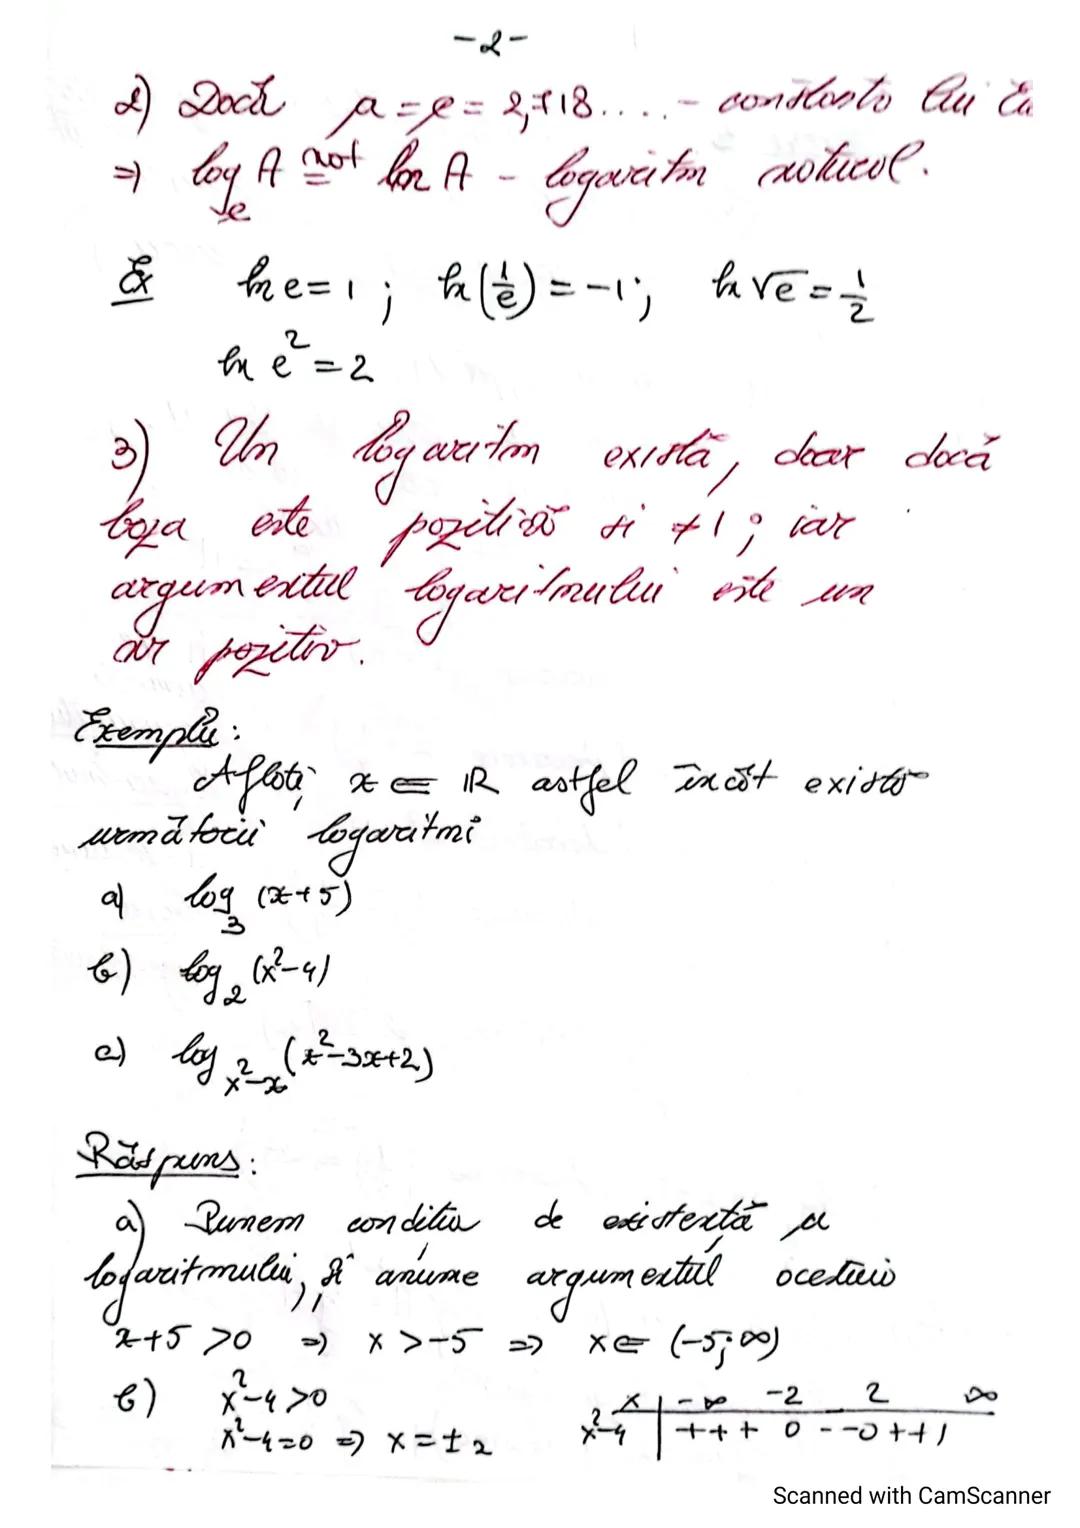 -2-
2) Dacă a = e = 2,718.... - constanta lui Eu
⇒ log_e A not= ln A - logaritm natural.
Ex ln e = 1 ; ln(1/e) = -1 ; ln √e = 1/2
ln e² = 2
3) Un logaritm există, doar dacă
baza este pozitivă si ≠ 1 ; iar
argumentul logaritmului este un
nr pozitiv.
Exemplu:
Aflați x ∈ ℝ astfel încât există
următorii logaritmi
a) log_3 (x+5)
b) log_2 (x²-4)
c) log_{x²-x} (x²-3x+2)
Răspuns:
a) Punem condiția de existență a
logaritmului, și anume argumentul acestuia
x+5 > 0 ⇒ x > -5 ⇒ x ∈ (-5; ∞)
b) x²-4 > 0
x²-4=0 ⇒ x = ±2
x | -∞ -2 2 ∞
x²-4 | +++ 0 -- 0 ++
Scanned with CamScanner